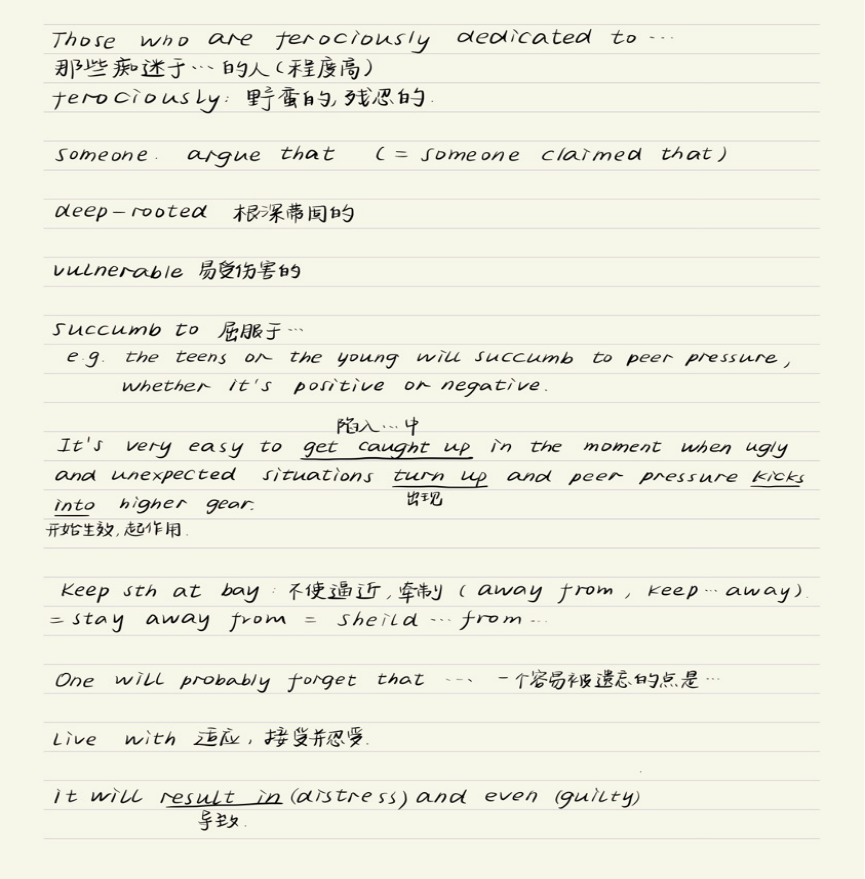 Those who are ferociously dedicated to ...
那些痴迷于…的人(程度高)
ferociously: 野蛮的,残忍的.
someone. argue that (= someone claimed that)
deep-rooted 根深蒂固的
vulnerable 易受伤害的
succumb to 屈服于…
e.g. the teens or the young will succumb to peer pressure,
whether it's positive or negative.
陷入…中
It's very easy to get caught up in the moment when ugly
and unexpected situations turn up and peer pressure kicks
出现
into higher gear.
开始生效,起作用.
Keep sth at bay: 不使逼近,牵制 (away from, keep…away).
= stay away from = sheild … from …
One will probably forget that … 一个容易被遗忘的点是…
Live with 适应,接受并忍受.
it will result in (distress) and even (guilty)
导致.